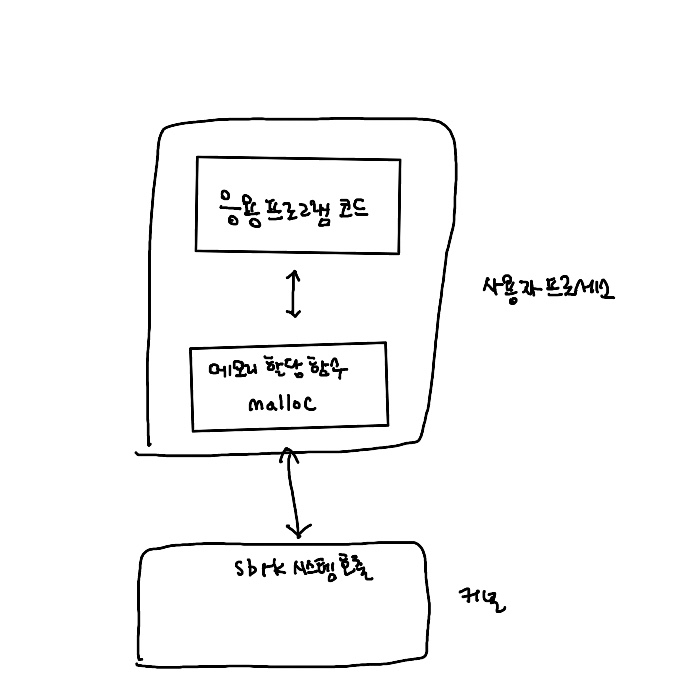 응용 프로그램 코드
사용자 프로세스
메모리 할당 함수
malloc
sbrk 시스템 호출
커널